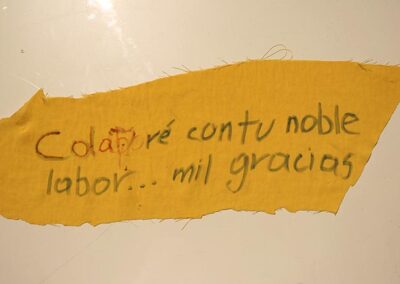 Colaboré con tu noble
labor... mil gracias